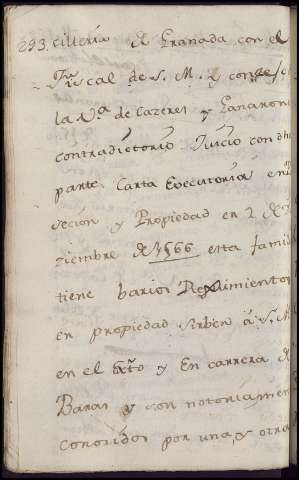 293. cilleria de Granada con el
Fiscal de S. M. y con
la V.ª de Cazeres y Ganaron
contradictorio Juicio con dha
parte Carta Executoria en
secion y Propiedad en 2 de
ziembre de 1566 esta famil
tiene barios Reximientos
en propiedad sirben à S. M
en el Extº y En carrera de
Baras y son notoriamen
conosidos por una, y otra